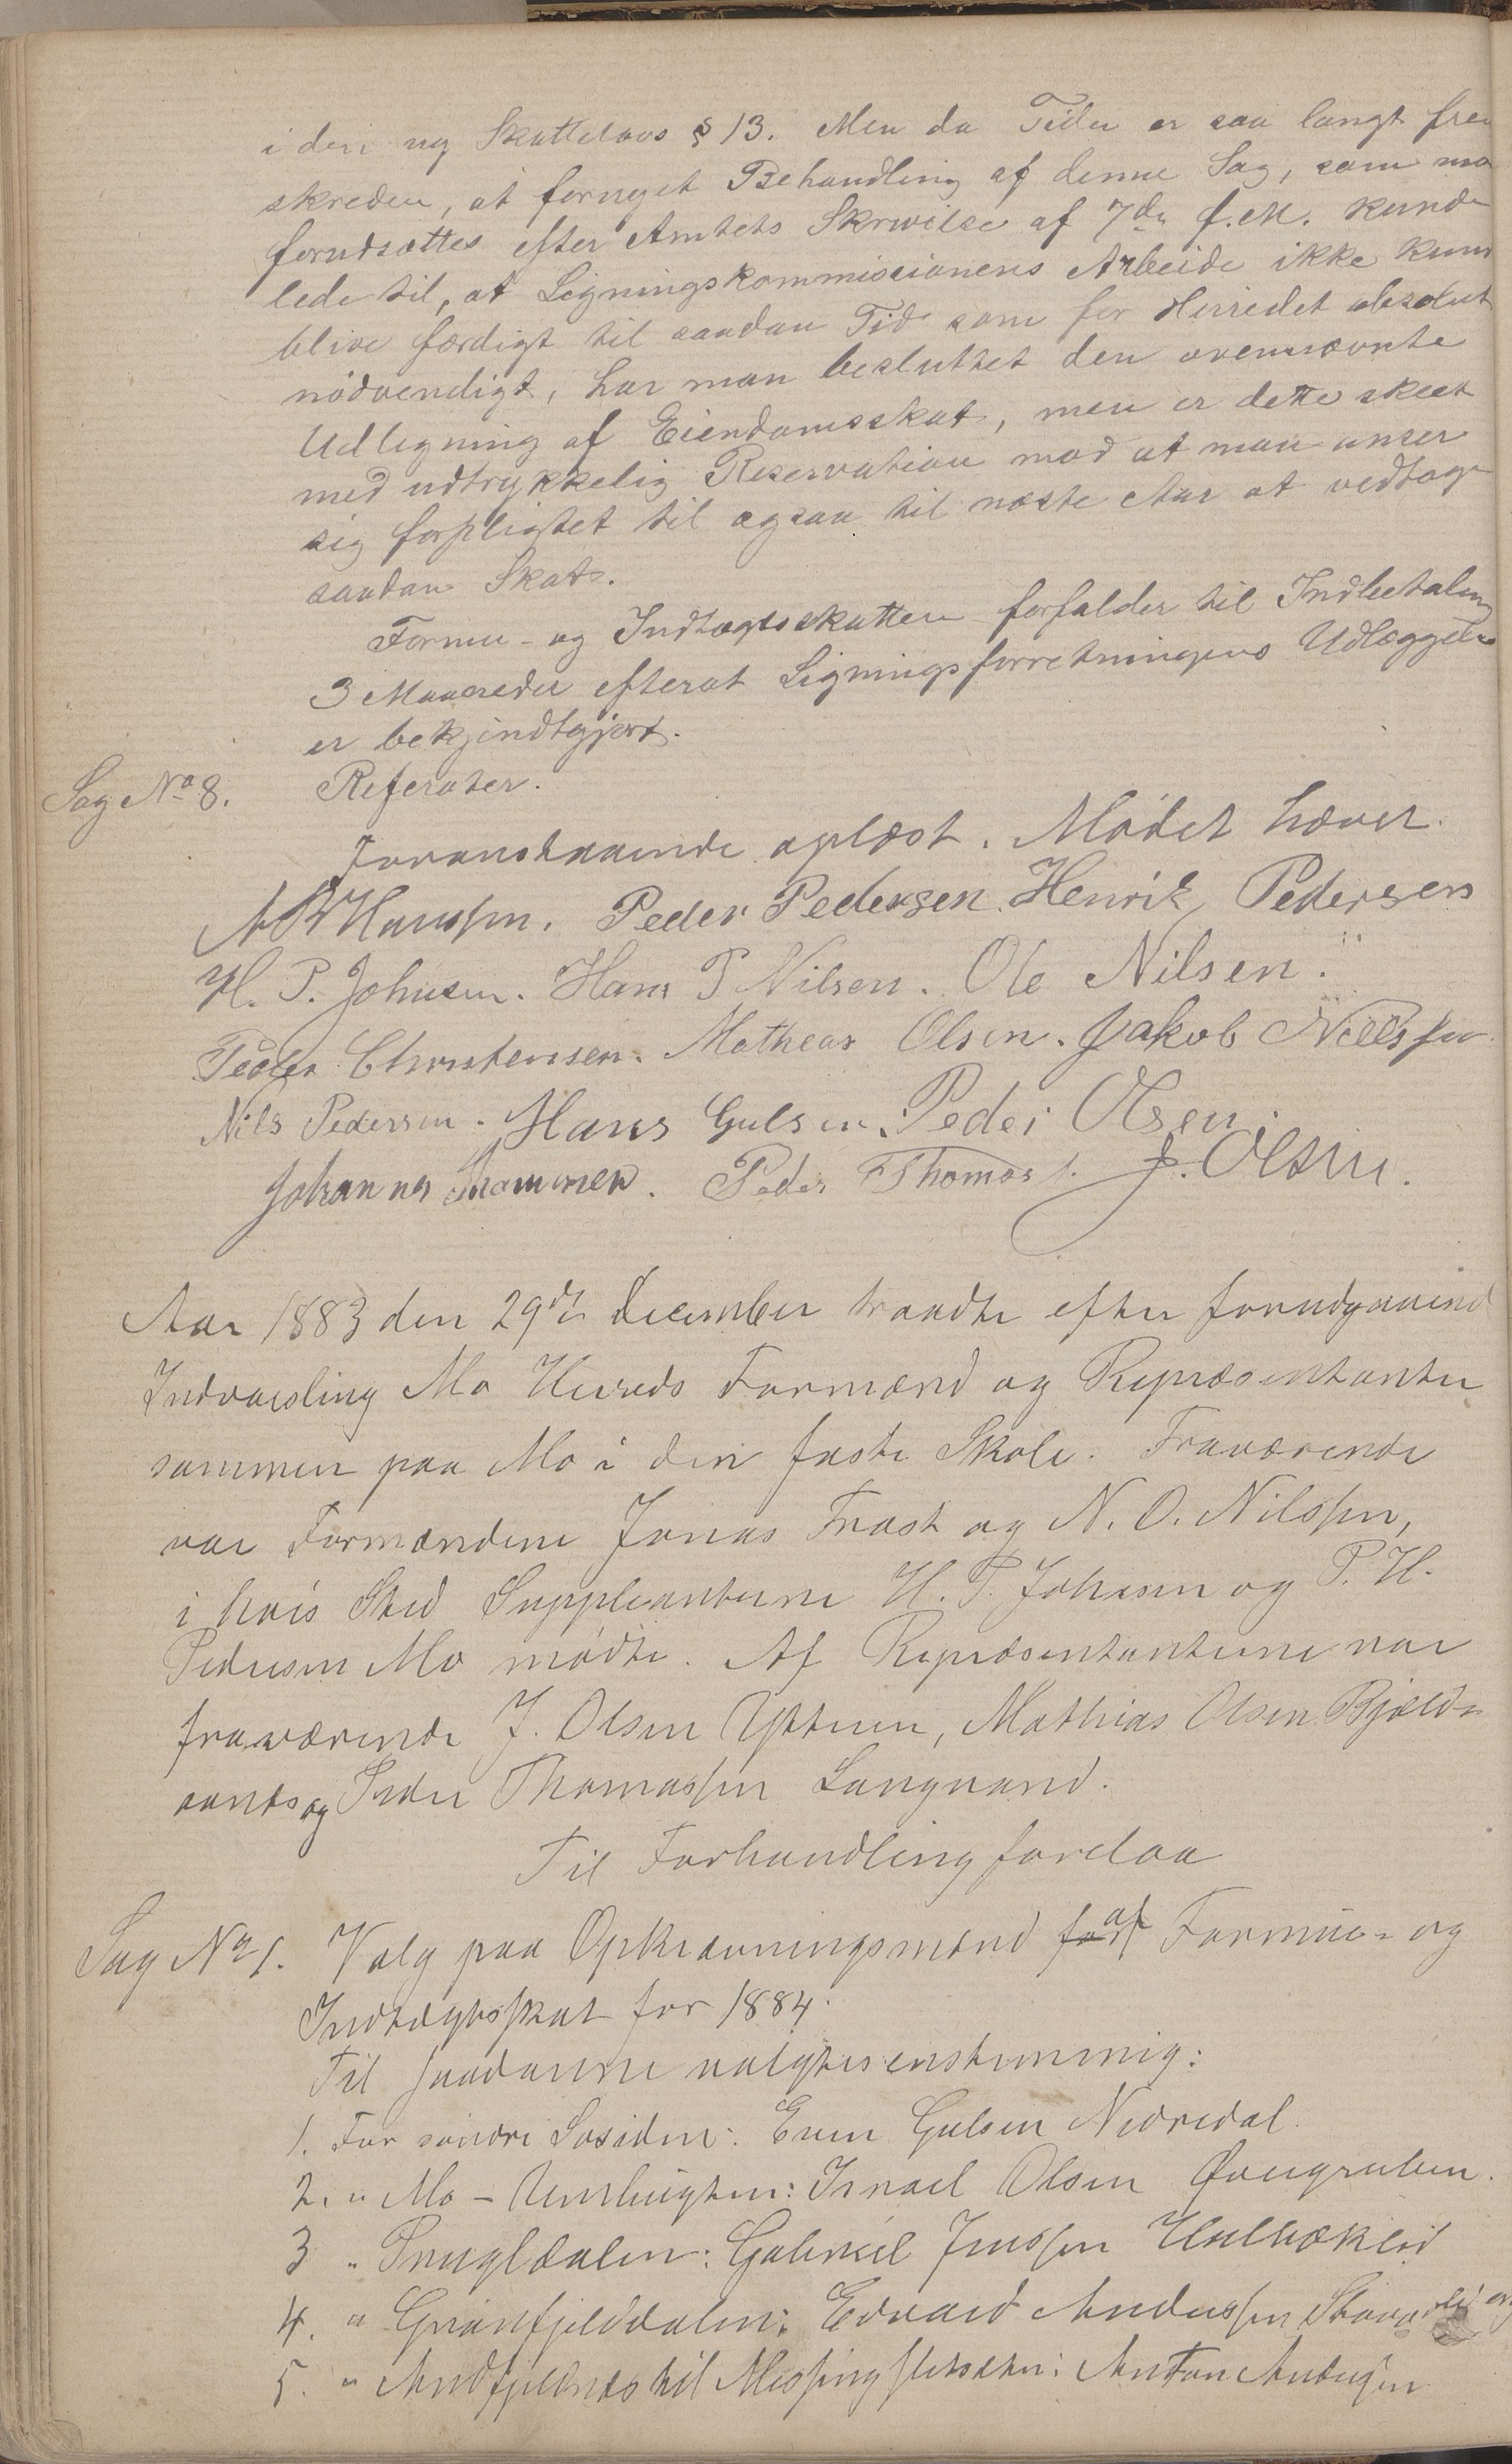 i den ny Skattelovs § 13. Men da Tiden er saa langt frem
skreden, at fornyet Behandling af denne Sag, som maa
forudsættes efter Amtets Skrivelse af 7de f.M. kunde
lede til, at Ligningskommissionens Arbeide ikke kund
blive færdigt til saadan Tid som for Herredet absolut
nödvendigt, har man besluttet den ovennævnte
Udligning af Eiendomsskat, men er dette skeet
med udtrykkelig Reservation mod at man anser
sig forpligtet til ogsaa til næste Aar at vedtage
saadan Skat.
Formu- og Indtægtsskatten forfalder til Indbetaling
3 Maaneder efterat Ligningsforretningens Udlæggelse
er bekjendtgjort.
Sag No 8. Referater.
Foranstaaende oplæst. Mödet hævet.
Hanssen. Peder Pedersen Henrik Pedersen
H. P. Johnsen. Hans P Nilsen. Ole Nilsen.
Peder Christensen. Matheas Olsen. Jakob Nielssen
Nils Pedersen. Hans Gulsen. Peder Olsen.
Johannes Peder Thomass. J. Olsen.
Aar 1883 den 29de December traadte efter forudgaaend
Indvarsling Mo Herreds Formænd og Repræsentanter
sammen paa Mo i den faste Skole. Fraværende
var Formændene Jonas Frost og N. O. Nilssen,
i hvis Sted Suppleanterne H. P. Johnsen og P. H.
Pedersen Mo mödte. Af Repræsentanterne var
fraværende J. Olsen Ytteren, Mathias Olsen Bjeld-
aanes og Peder Thomassen Langvand.
Til Forhandling forelaa
Sag No 1. Valg paa Opkrævningsmænd for af Formue- og
Indtægtsskat for 1884.
Til saadanne valgtes enstemmig:
1. For söndre Sosiden: Even Gulsen Nedredal.
2. " Mo - Umbugten: Israel Olsen
3 " Gabriel Jenssen
4. " Grønfjelddalen: Edvard Anderssen
5. " Andfjeldnes til Anton